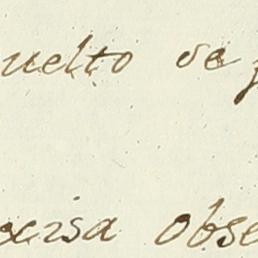 uelto de
ecisa obse